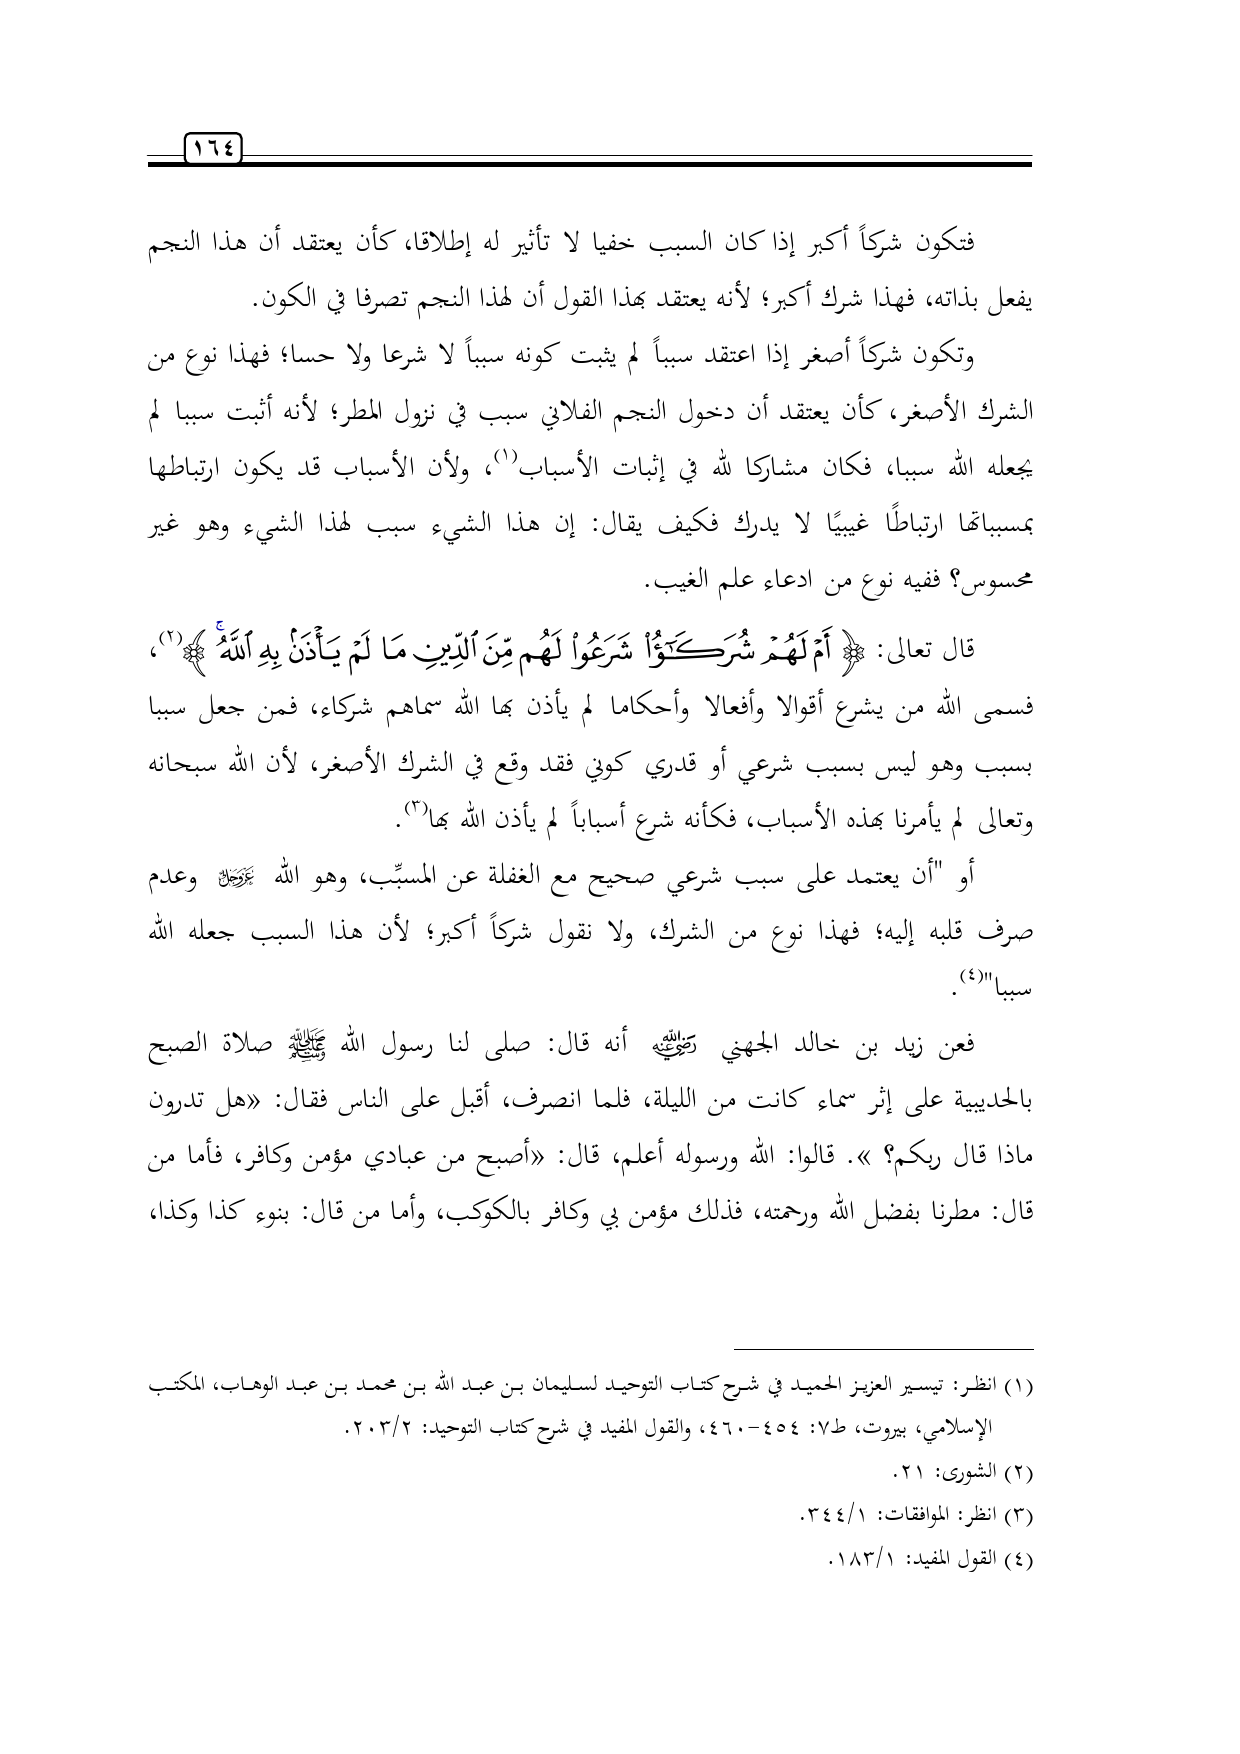 ١٦٤
فتكون شركاً أكبر إذا كان السبب خفيا لا تأثير له إطلاقا، كأن يعتقد أن هذا النجم
يفعل بذاته، فهذا شرك أكبر؛ لأنه يعتقد بهذا القول أن لهذا النجم تصرفا في الكون.
وتكون شركاً أصغر إذا اعتقد سبباً لم يثبت كونه سبباً لا شرعا ولا حسا؛ فهذا نوع من
الشرك الأصغر، كأن يعتقد أن دخول النجم الفلاني سبب في نزول المطر؛ لأنه أثبت سببا لم
يجعله الله سببا، فكان مشاركا لله في إثبات الأسباب(١)، ولأن الأسباب قد يكون ارتباطها
بمسبباتها ارتباطًا غيبيًا لا يدرك فكيف يقال: إن هذا الشيء سبب لهذا الشيء وهو غير
محسوس؟ ففيه نوع من ادعاء علم الغيب.
قال تعالى: ﴿أَمۡ لَهُمۡ شُرَكَٰٓؤُاْ شَرَعُواْ لَهُم مِّنَ ٱلدِّينِ مَا لَمۡ يَأۡذَنۢ بِهِ ٱللَّهُۚ﴾(٢)،
فسمى الله من يشرع أقوالا وأفعالا وأحكاما لم يأذن بها الله سماهم شركاء، فمن جعل سببا
بسبب وهو ليس بسبب شرعي أو قدري كوني فقد وقع في الشرك الأصغر، لأن الله سبحانه
وتعالى لم يأمرنا بهذه الأسباب، فكأنه شرع أسباباً لم يأذن الله بها(٣).
أو "أن يعتمد على سبب شرعي صحيح مع الغفلة عن المسبِّب، وهو الله عز وجل وعدم
صرف قلبه إليه؛ فهذا نوع من الشرك، ولا نقول شركاً أكبر؛ لأن هذا السبب جعله الله
سببا"(٤).
فعن زيد بن خالد الجهني رضي الله عنه أنه قال: صلى لنا رسول الله ﷺ صلاة الصبح
بالحديبية على إثر سماء كانت من الليلة، فلما انصرف، أقبل على الناس فقال: «هل تدرون
ماذا قال ربكم؟ ». قالوا: الله ورسوله أعلم، قال: «أصبح من عبادي مؤمن وكافر، فأما من
قال: مطرنا بفضل الله ورحمته، فذلك مؤمن بي وكافر بالكوكب، وأما من قال: بنوء كذا وكذا،
(١) انظر: تيسير العزيز الحميد في شرح كتاب التوحيد لسليمان بن عبد الله بن محمد بن عبد الوهاب، المكتب
الإسلامي، بيروت، ط٧: ٤٥٤-٤٦٠، والقول المفيد في شرح كتاب التوحيد: ٢٠٣/٢.
(٢) الشورى: ٢١.
(٣) انظر: الموافقات: ٣٤٤/١.
(٤) القول المفيد: ١٨٣/١.